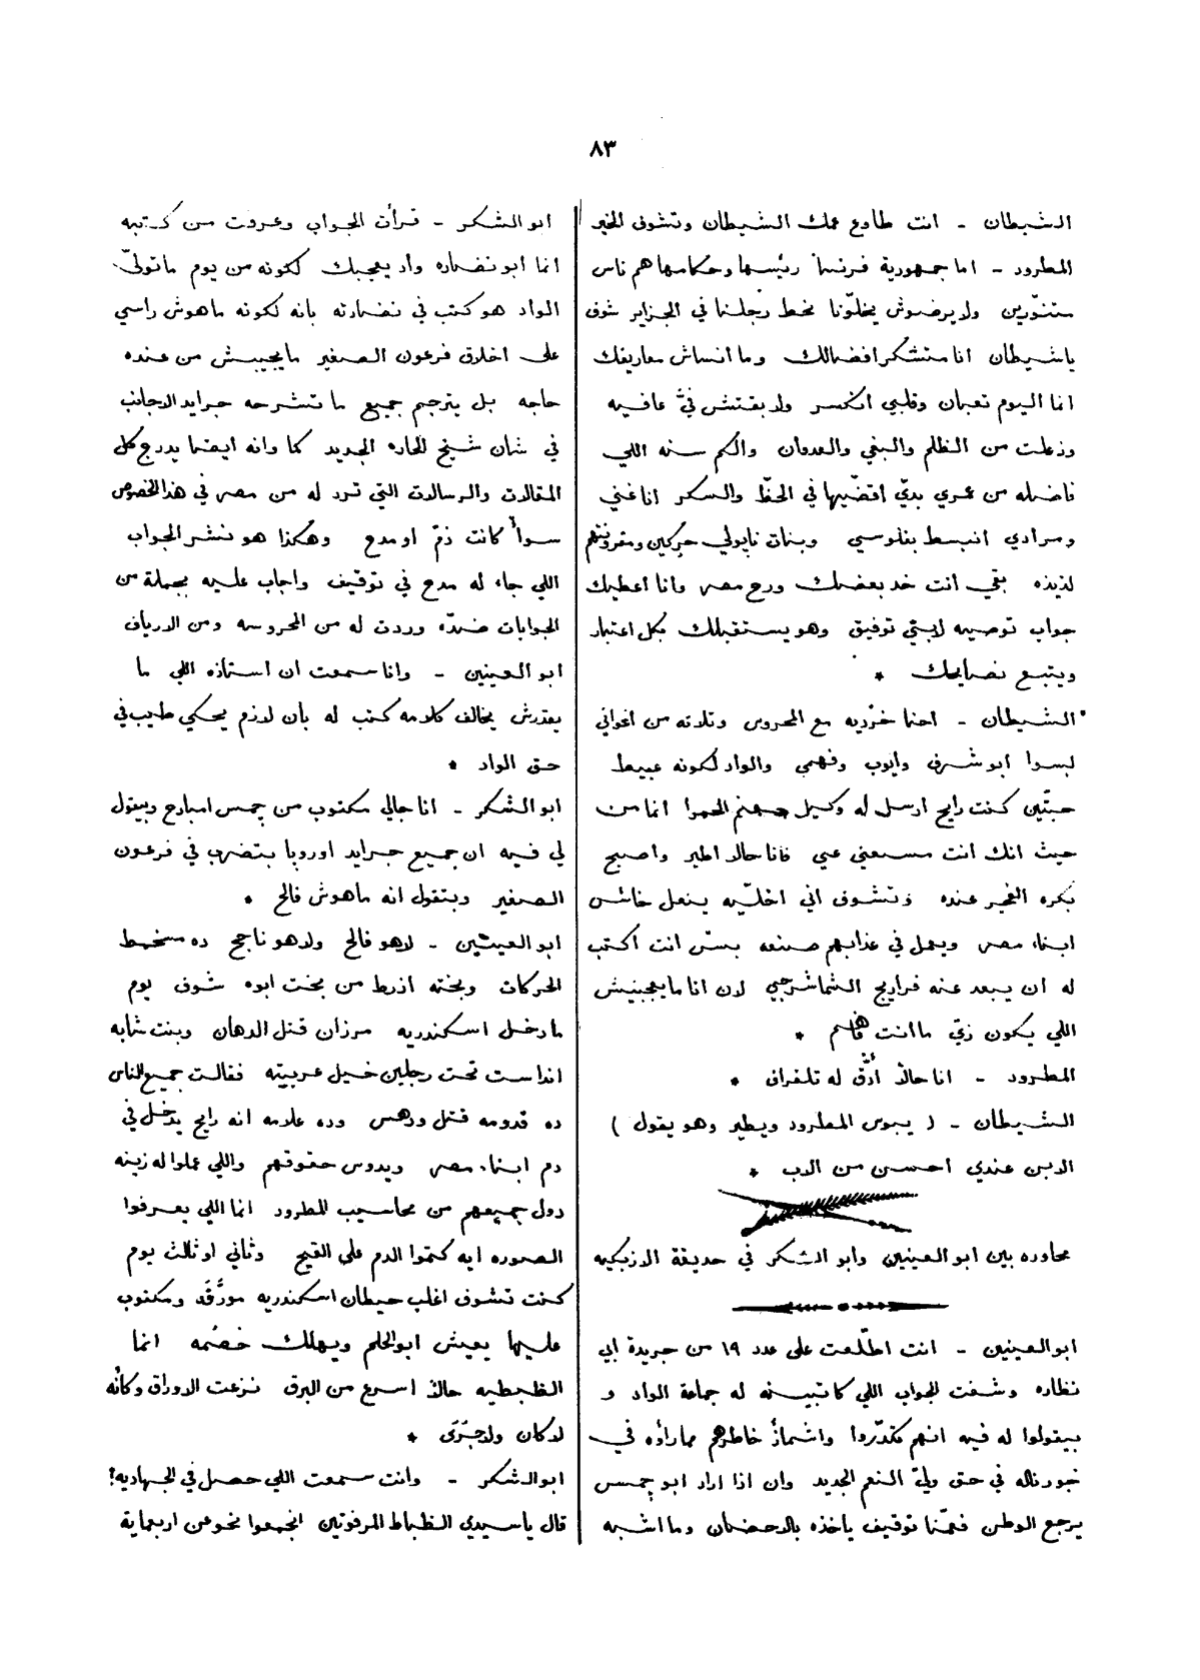 ٨٣
الشيطان - انت طاوع عمك الشيطان وتشوف الخير
المطرود - اما جمهورية فرنسا رئيسها وحكامها هم ناس
متنورين ولا يرضوش يخلّونا نحط رجلنا في الجزاير شوف
ياشيطان انا متشكر افضالك وما انساش معاريفك
انما اليوم تعبان وقلبي انكسر ولا بقتش فيّ عافيه
وزعلت من الظلم والبغي والعدوان والكم سنه اللي
فاضله من عمري بدّي اقضّيها في الحظّ والسكر انا غني
ومرادي انبسط بفلوسي وبنات نابولي حركين ومقرونتهم
لذيذه بقي انت خد بعضك ورح مصر وانا اعطيك
جواب توصيه لابني توفيق وهو يستقبلك بكل اعتبار
ويتبع نصايحك *
الشيطان - احنا خزّديه مع المحروس وتلاته من اخواني
لبسوا ابو شرف وايوب وفهمي والواد لكونه عبيط
حبّتين كنت رايح ارسل له وكيل جهنم الحمرا انما من
حيث انك انت مسمعني عمي فانا حالا اطير واصبح
بكره الفجر عنده وتشوف اني اخلّيه ينعل خاش
ابناء مصر ويعمل في عذابهم صنعه بسّ انت اكتب
له ان يبعد عنه فراريج الشماشرجي لان انا ما يعجبنيش
اللي يكون زيّ ما انت فاهم *
المطرود - انا حالا أدُقّ له تلغراف *
الشيطان - ( يبوس المطرود ويطير وهو يقول )
الابن عندي احسن من الاب *
محاوره بين ابو العينين وابو الشكر في حديقة الازبكيه
ابو العينين - انت اطّلعت على عدد ١٩ من جريدة ابي
نظاره وشفت الجواب اللي كاتبينه له جماعة الواد و
بيقولوا له فيه انهم تكدّروا واشمأز خاطرهم مما رأوه في
جورناله في حق وليّ النعم الجديد وان اذا اراد ابو جمس
يرجع الوطن فعمّنا توقيف ياخذه بالاحضان وما اشبه
ابو الشكر - قرأت الجواب وعرفت من كتبه
انما ابو نضاره واد يعجبك لكونه من يوم ما تولىّ
الواد هو كتب في نضارته بانه لكونه ماهوش راسي
على اخلاق فرعون الصغير ما يجيبش من عنده
حاجه بل يترجم جميع ما تشرحه جرايد الاجانب
في شان شيخ الحاره الجديد كما وانه ايضا يدرج كل
المقالات والرسالات التي ترد له من مصر في هذا الخصوص
سوأ كانت ذمّ او مدح وهكذا هو نشر الجواب
اللي جاء له مدح في توقيف واجاب عليه بجملة من
الجوابات ضدّه وردت له من المحروسه ومن الارياف
ابو العينين - وانا سمعت ان استاذه اللي ما
يقدرش يخالف كلامه كتب له بان لازم يحكي طيب في
حق الواد *
ابو الشكر - انا جالي مكتوب من جمس امبارح وبيقول
لي فيه ان جميع جرايد اوروبا بتضرب في فرعون
الصغير وبتقول انه ماهوش فالح *
ابو العينين - لاهو فالح ولاهو ناجح ده مسخط
الحركات وبخته ازرط من بخت ابوه شوف يوم
ما دخل اسكندريه مرزان قتل الدهان وبنت شابه
انداست تحت رجلين خيل عربيته فقالت جميع الناس
ده قدومه قتل ودهس وده علامه انه رايح يدخل في
دم ابناء مصر ويدوس حقوقهم واللي عملوا له زينه
دول جميعهم من محاسيب المطرود انما اللي يعرفوا
الصوره ايه كتموا الدم على القيح وثاني او ثالث يوم
كنت تشوف اغلب حيطان اسكندريه مورَّقه ومكتوب
عليها يعيش ابو الحلم ويهلك خصمه انما
الظبطيه حالا اسرع من البرق نزعت الاوراق وكأنه
لا كان ولا جَرَى *
ابو الشكر - وانت سمعت اللي حصل في الجهاديه؟
قال ياسيدي الظباط المرفوتين اتجمعوا نحو عن اربعماية